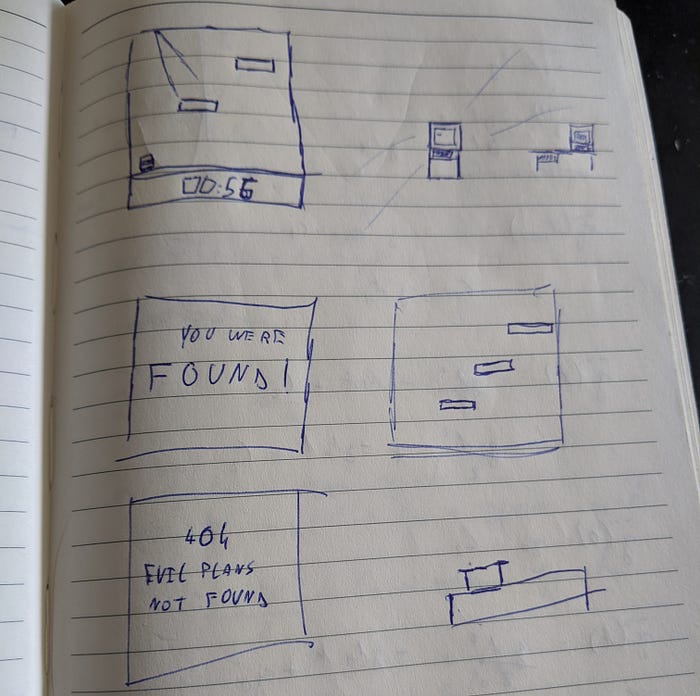 00:56
YOU WERE
FOUND!
404
EVIL PLANS
NOT FOUND